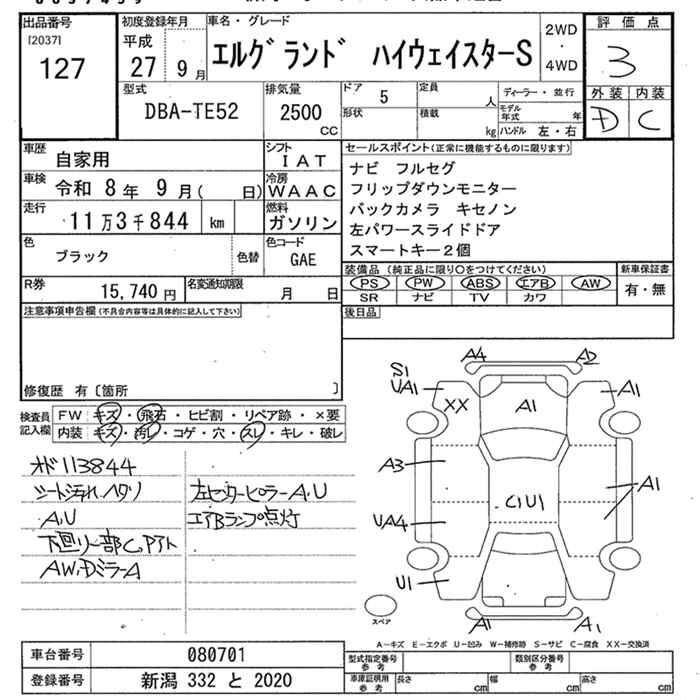 出品番号
[2037]
127
初度登録年月
平成
27 9月
車名・グレード
エルグランド ハイウェイスターS
2WD
・
4WD
評価点
3
外装 内装
D C
型式
DBA-TE52
排気量
2500
CC
ドア 5
形状
定員
人
積載
kg
ディーラー・並行
モデル年式 年
ハンドル 左・右
車歴
自家用
シフト
IAT
車検 令和 8年 9月( 日)
冷房
WAAC
走行
11万3千844 km
燃料
ガソリン
色
ブラック
色替
色コード
GAE
R券
15,740円
名変通知期限
月 日
セールスポイント(正常に機能するものに限ります)
ナビ フルセグ
フリップダウンモニター
バックカメラ キセノン
左パワースライドドア
スマートキー2個
装備品(純正品に限り○をつけてください)
PS PW ABS エアB AW
SR ナビ TV カワ
新車保証書
有・無
後日品
注意事項申告欄(不具合内容等は具体的に記入して下さい)
修復歴 有〔箇所 〕
検査員
記入欄
FW キズ・飛石・ヒビ割・リペア跡・×要
内装 キズ・汚レ・コゲ・穴・スレ・キレ・破レ
オド113844
シート汚れ ヘタリ
A.U
下廻り一部C.Pアト
AW.DミラーA
左センターピラーA.U
エアBランプ点灯
A4
A2
S1
UA1
XX
A1
A1
A3
C1U1
A1
UA4
U1
A1
A1
スペア
A-キズ E-エクボ U-凹み W-補修跡 S-サビ C-腐食 XX-交換済
車台番号 080701
登録番号 新潟 332 と 2020
型式指定番号
参考
類別区分番号
参考
車庫証明用
参考
長さ cm
幅 cm
高さ cm